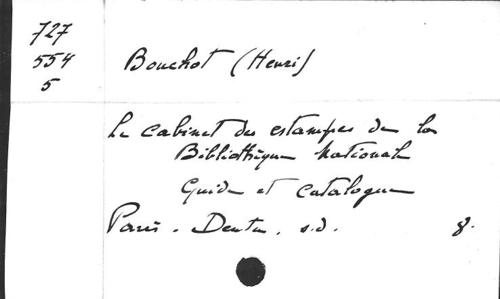 727
554
5
Bouchot (Henri)
Le cabinet des estampes de la
Bibliothèque National
Guide et catalogue
Paris. Dentu. s.d. 8.